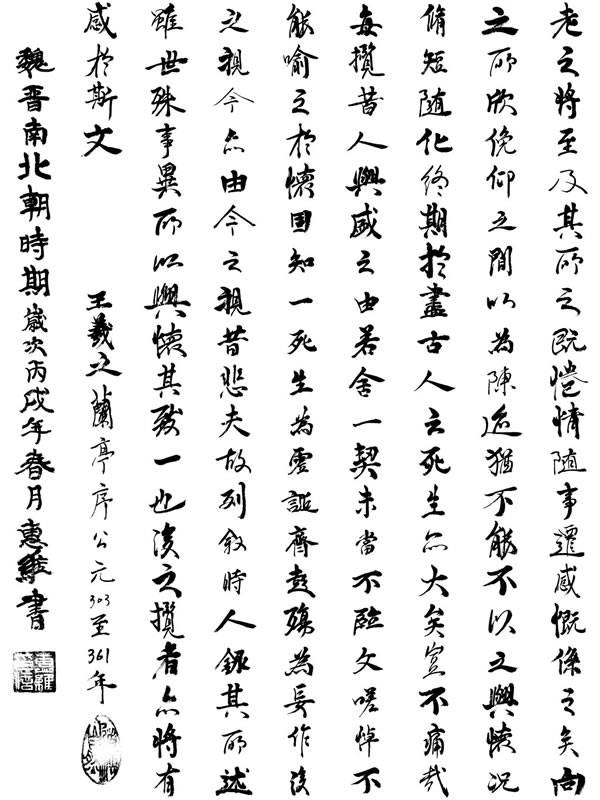 老之将至及其所之既惓情随事遷感慨係之矣向
之所欣俛仰之間以為陳迹猶不能不以之興懐況
脩短随化終期於盡古人云死生亦大矣豈不痛哉
每攬昔人興感之由若舍一契未當不臨文嗟悼不
能喻之於懷固知一死生為虛誕齊彭殤為妄作後
之視今亦由今之視昔悲夫故列叙時人録其所述
雖世殊事異所以興懷其致一也後之攬者亦将有
感於斯文
王羲之蘭亭序公元303至361年
魏晋南北朝時期歲次丙戌年春月惠維書